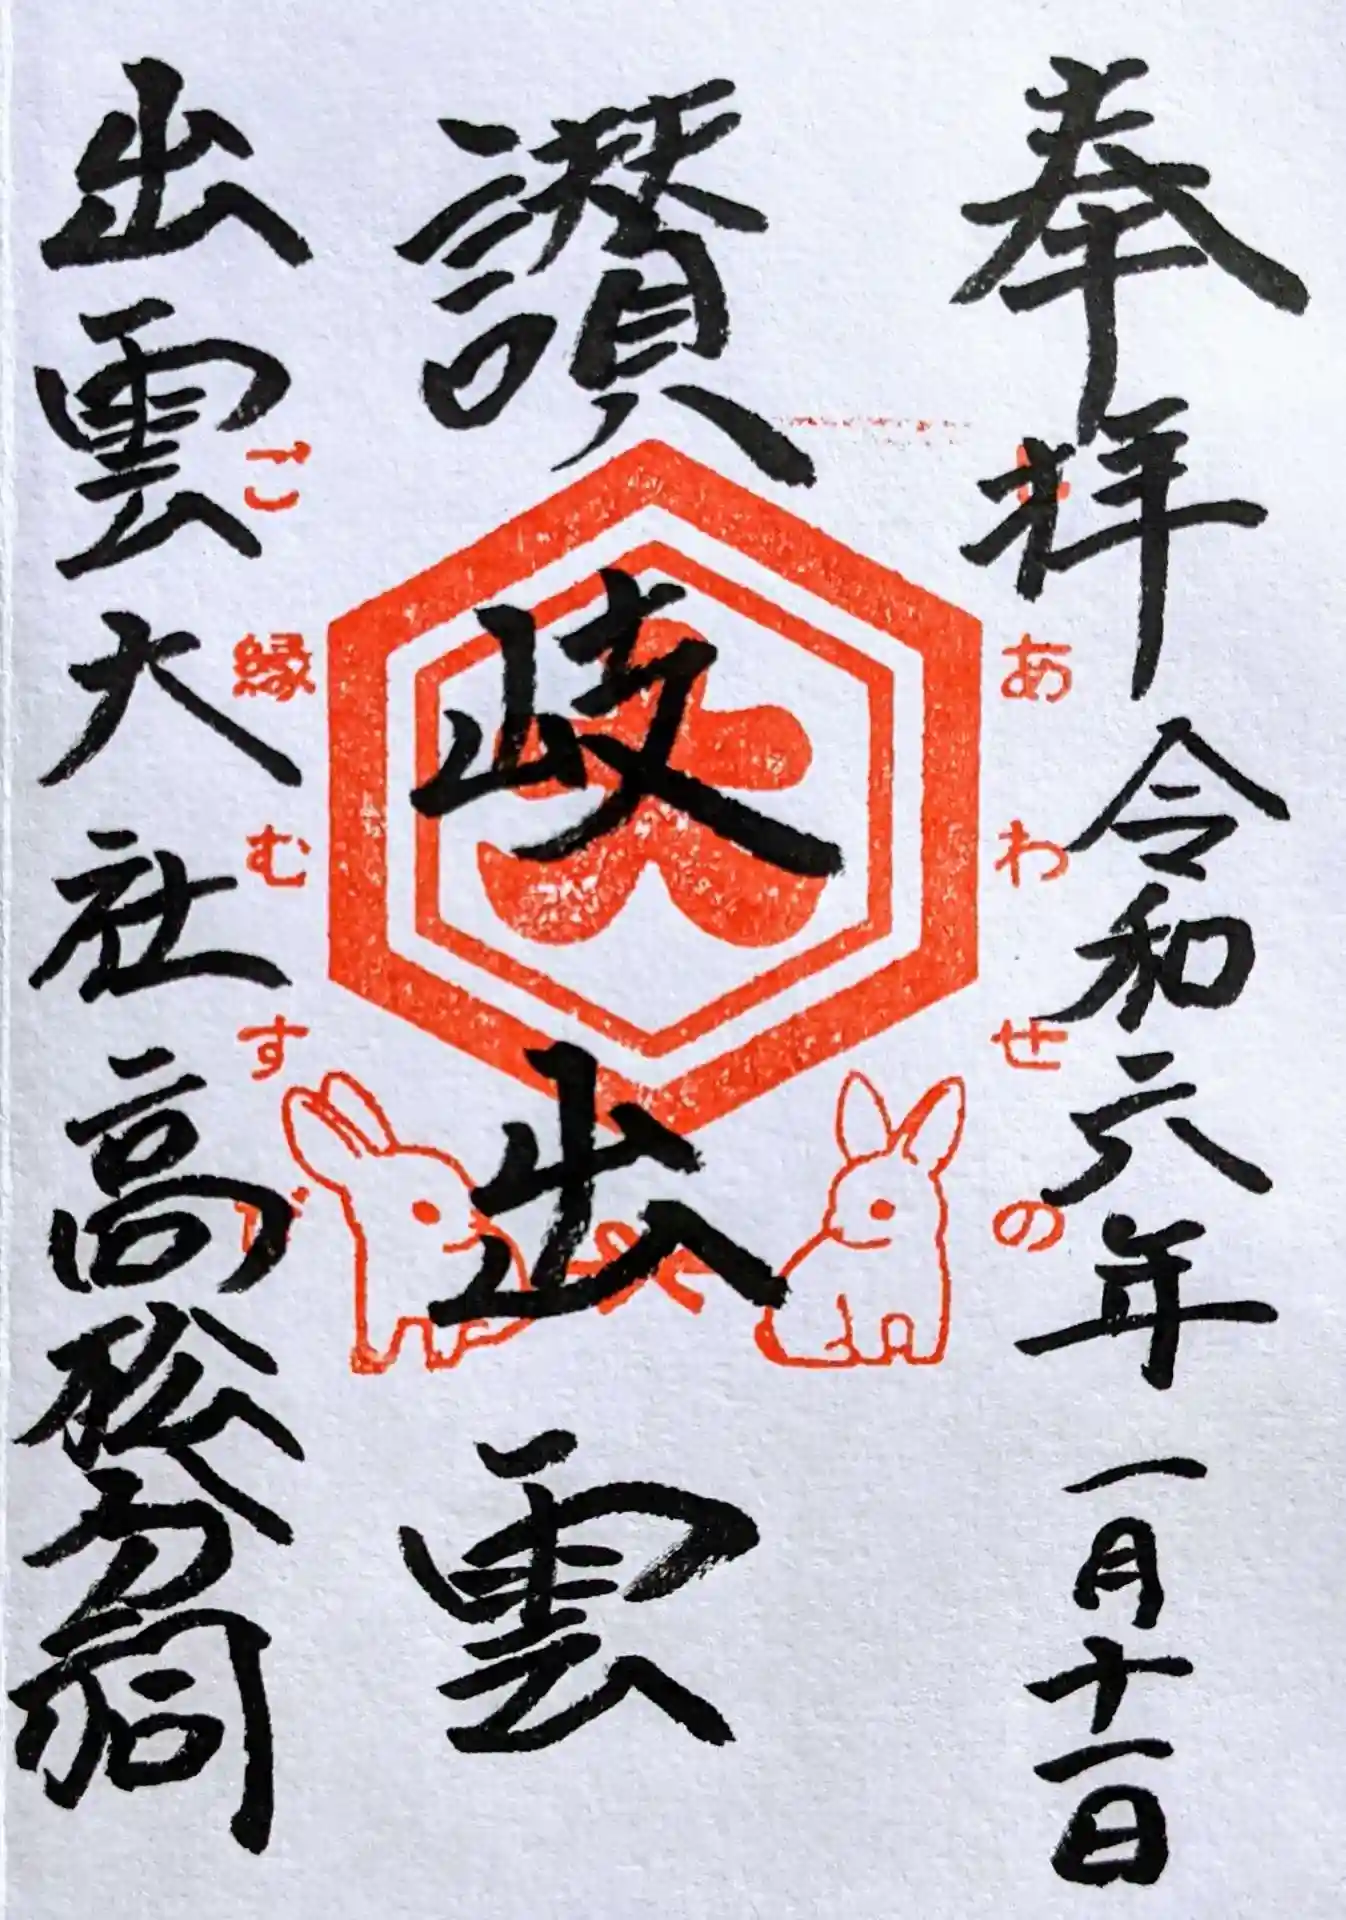 奉拝 令和六年一月十一日
しあわせの
讃岐出雲
大
ご縁むすび
出雲大社高松分祠